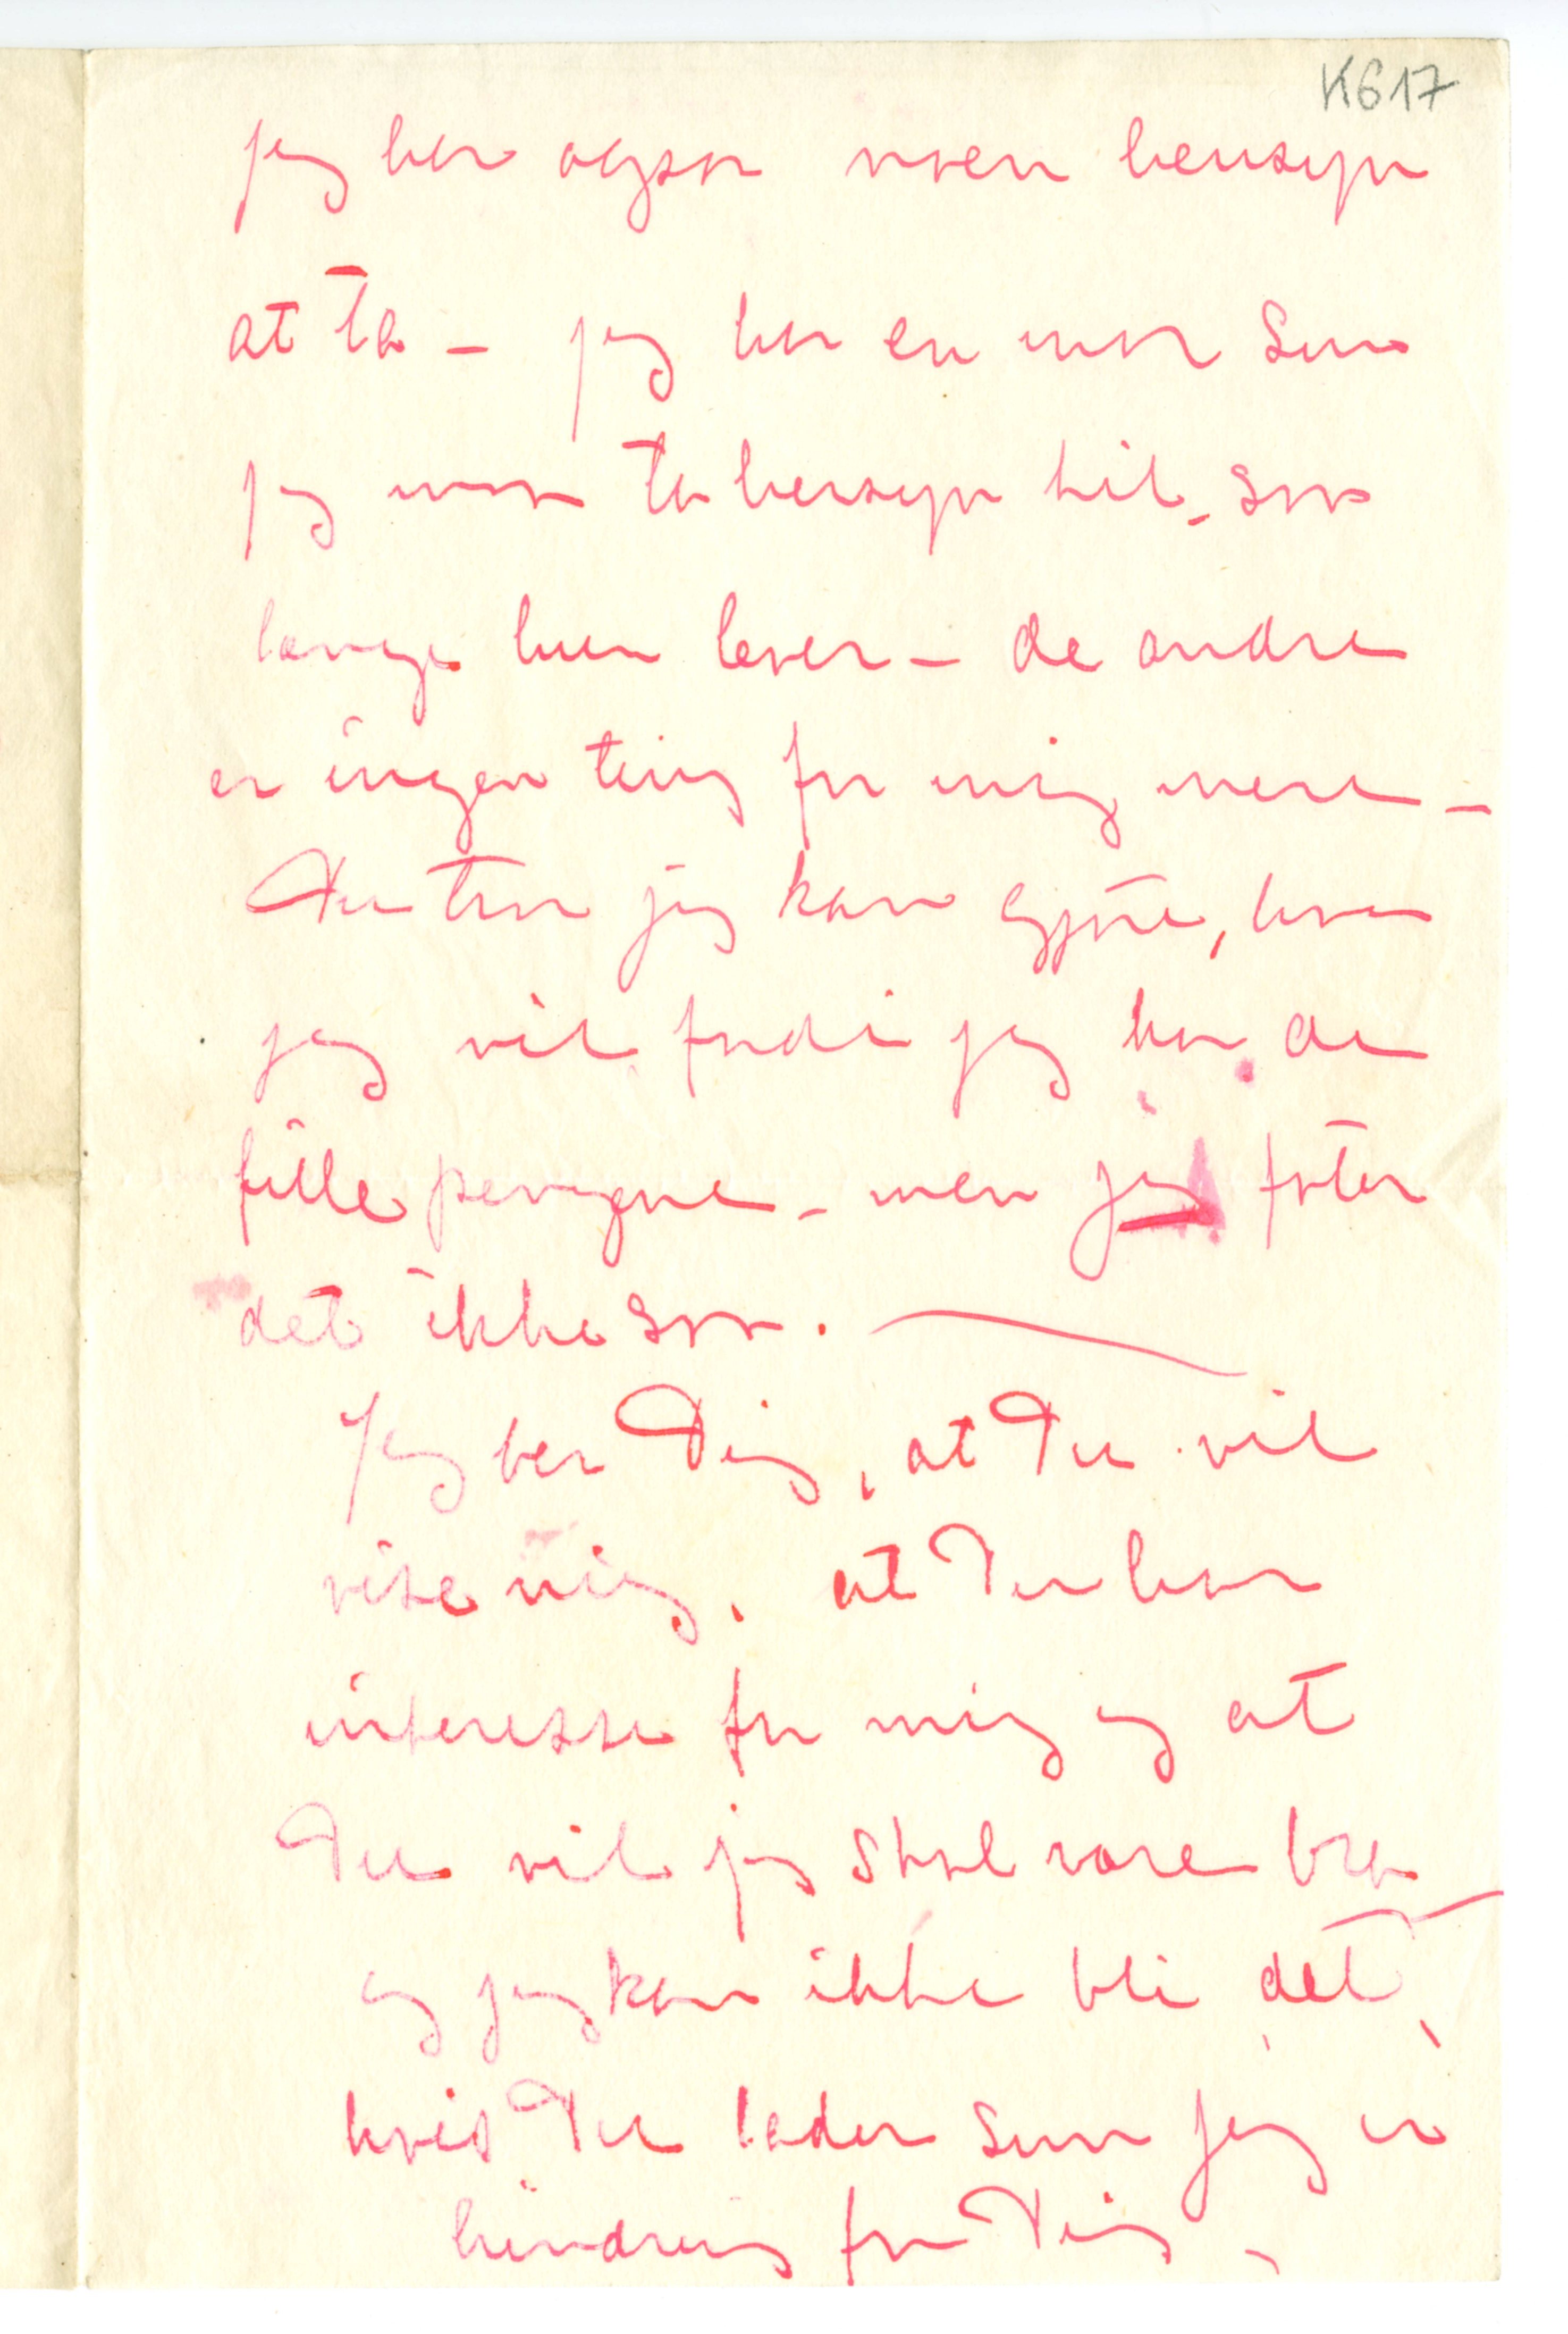 K617
jeg har ogsaa noen hensyn
at ta – jeg har en mor som
jeg maa ta hensyn til, saa
længe hun lever – de andre
er ingen ting for mig mere –
Du tror jeg kan gjøre, hva
jeg vil fordi jeg har de
fille pengene – men jeg føler
det ikke saa.
Jeg ber Dig, at Du vil
vise mig, at Du har
interesse for mig og at
Du vil jeg skal være bra
og jeg kan ikke bli det,
hvis Du lader som jeg er
hindring for Dig –